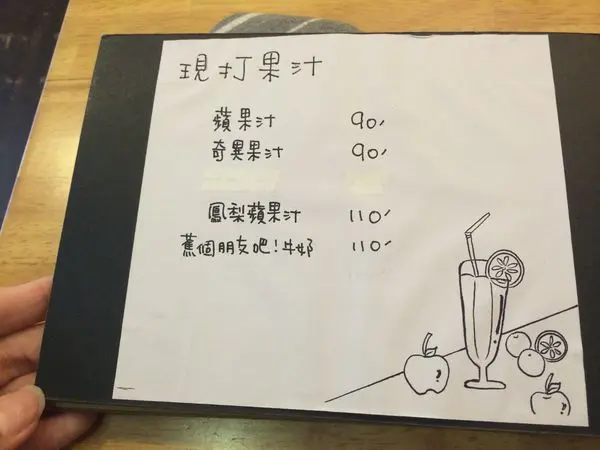 現打果汁
蘋果汁 90,-
奇異果汁 90,-
鳳梨蘋果汁 110,-
蕉個朋友吧!牛奶 110,-